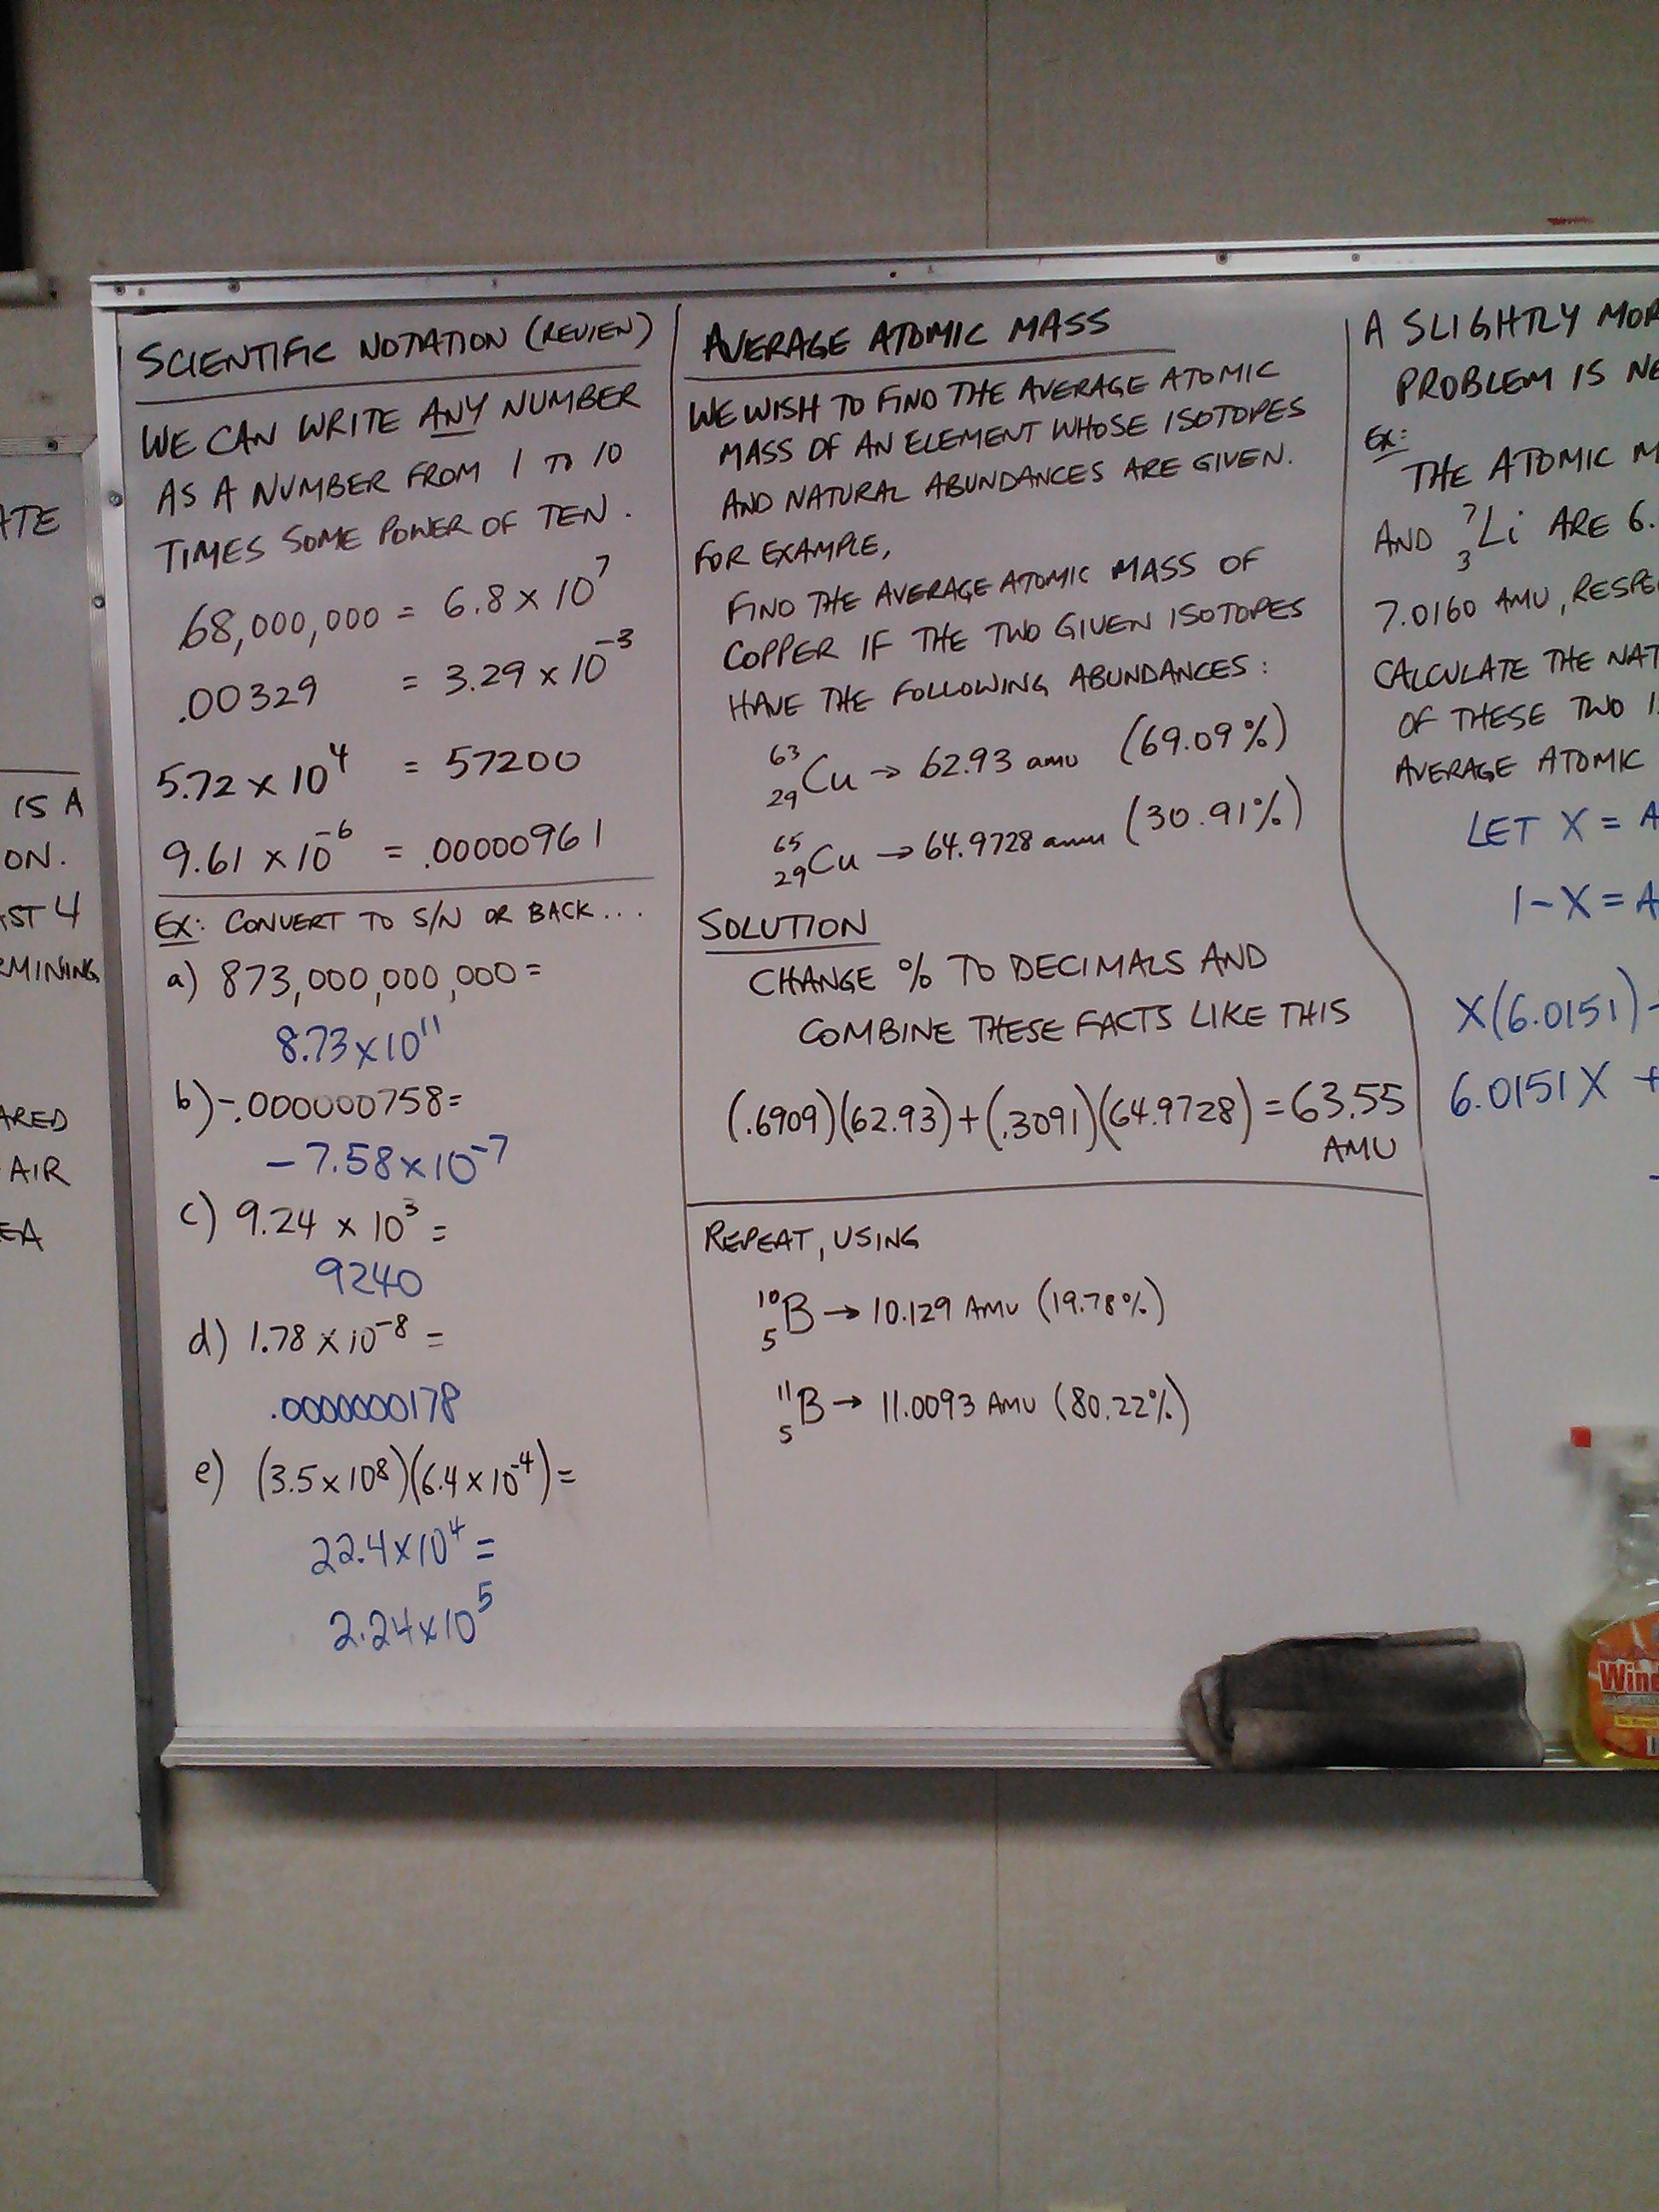 ATE
IS A
ON.
AST 4
RMINING
ARED
AIR
EA
SCIENTIFIC NOTATION (REVIEW)
WE CAN WRITE ANY NUMBER
AS A NUMBER FROM 1 TO 10
TIMES SOME POWER OF TEN.
68,000,000 = 6.8 x 10⁷
.00329 = 3.29 x 10⁻³
5.72 x 10⁴ = 57200
9.61 x 10⁻⁶ = .00000961
EX: CONVERT TO S/N OR BACK...
a) 873,000,000,000 =
8.73 x 10¹¹
b) -.000000758 =
-7.58 x 10⁻⁷
c) 9.24 x 10³ =
9240
d) 1.78 x 10⁻⁸ =
.0000000178
e) (3.5 x 10⁸)(6.4 x 10⁻⁴) =
22.4 x 10⁴ =
2.24 x 10⁵
AVERAGE ATOMIC MASS
WE WISH TO FIND THE AVERAGE ATOMIC
MASS OF AN ELEMENT WHOSE ISOTOPES
AND NATURAL ABUNDANCES ARE GIVEN.
FOR EXAMPLE,
FIND THE AVERAGE ATOMIC MASS OF
COPPER IF THE TWO GIVEN ISOTOPES
HAVE THE FOLLOWING ABUNDANCES:
⁶³₂₉Cu → 62.93 amu (69.09%)
⁶⁵₂₉Cu → 64.9728 amu (30.91%)
SOLUTION
CHANGE % TO DECIMALS AND
COMBINE THESE FACTS LIKE THIS
(.6909)(62.93)+(.3091)(64.9728) = 63.55
AMU
REPEAT, USING
¹⁰₅B → 10.129 AMU (19.78%)
¹¹₅B → 11.0093 AMU (80.22%)
A SLIGHTLY MOR
PROBLEM IS NE
EX:
THE ATOMIC M
AND ⁷₃Li ARE 6.
7.0160 AMU, RESPE
CALCULATE THE NAT
OF THESE TWO I
AVERAGE ATOMIC
LET X = A
1-X = A
X(6.0151)
6.0151X +
Wind